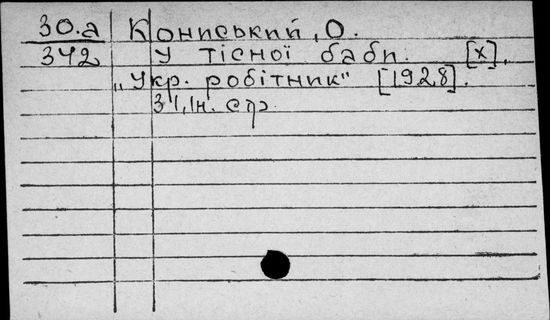 30.а Кониський, О.
342 У тісної баби. [х],
„Укр. робітник" [1928].
31,1н. стр.